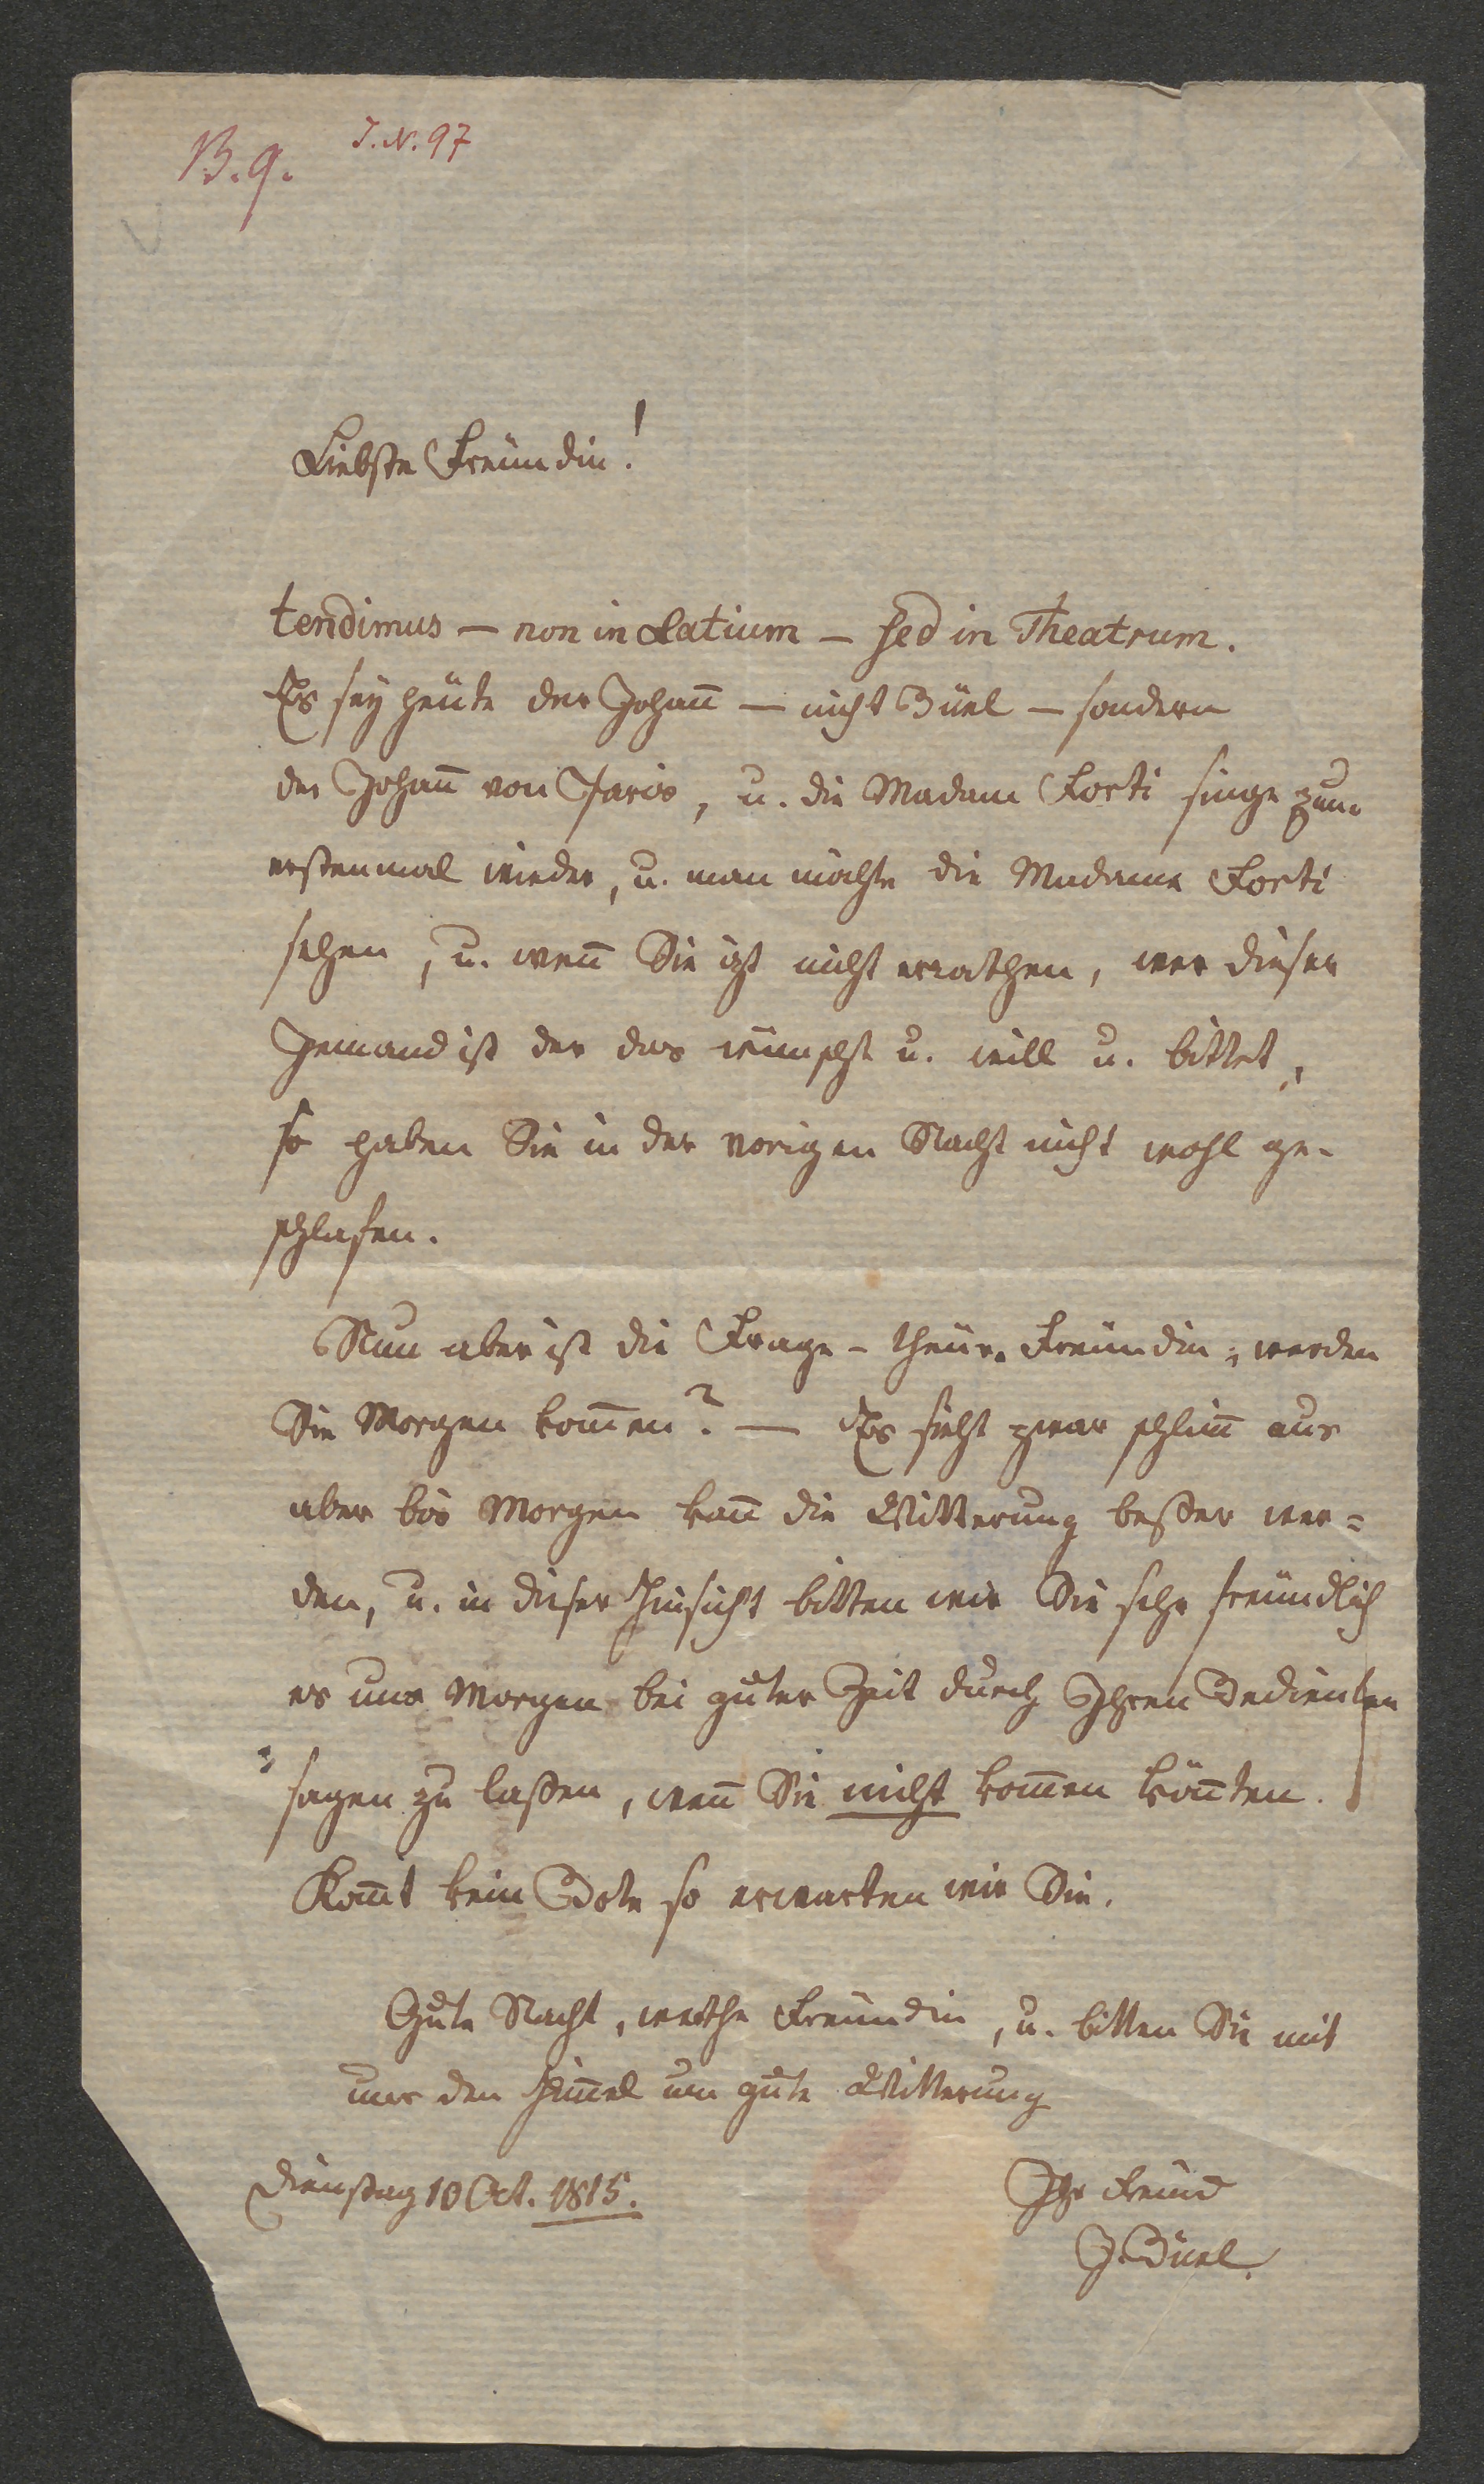 B.9. J.N. 97
Liebste Freündin!
tendimus — non in Latium — sed in Theatrum.
Es seÿ heüte der Johan̅ — nicht Büel — sondern
der Johan̅ von Paris, u. die Madam Forti singe zum
erstenmal wieder, u. man möchte die Madame Forti
sehen, u. wen̅ Sie izt nicht errathen, wer dieser
Jemand ist der das wünscht u. will u. bittet,
so haben Sie in der vorigen Nacht nicht wohl ge-
schlafen.
Nun aber ist die Frage - theüre Freündin, werden
Sie Morgen kom̅en? — Es sieht zwar schlim̅ aus
aber bis Morgen kan̅ die Witterung beßer wer=
den, u. in dieser Hinsicht bitten wir Sie sehr freündlich
es uns Morgen bei guter Zeit durch Ihren Bedienten
sagen zu laßen, wen̅ Sie nicht kom̅en kön̅ten.
Kom̅t kein Bote so erwarten wir Sie.
Gute Nacht, werthe Freündin, u. bitten Sie mit
uns den Him̅el um gute Witterung
Dienstag 10 Oct. 1815.
Ihr Freünd
J. Büel.